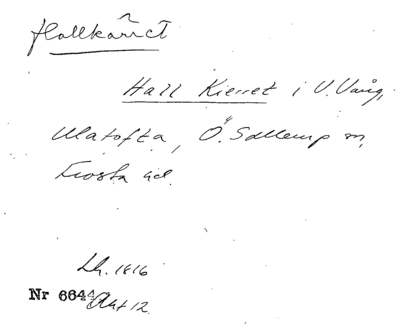 Hallkärret
Hall Kierret i V. Vång,
Ulatofta, Ö. Sallerup sn,
Frosta hd.
Lh. 1816
Nr 6644 Akt 12